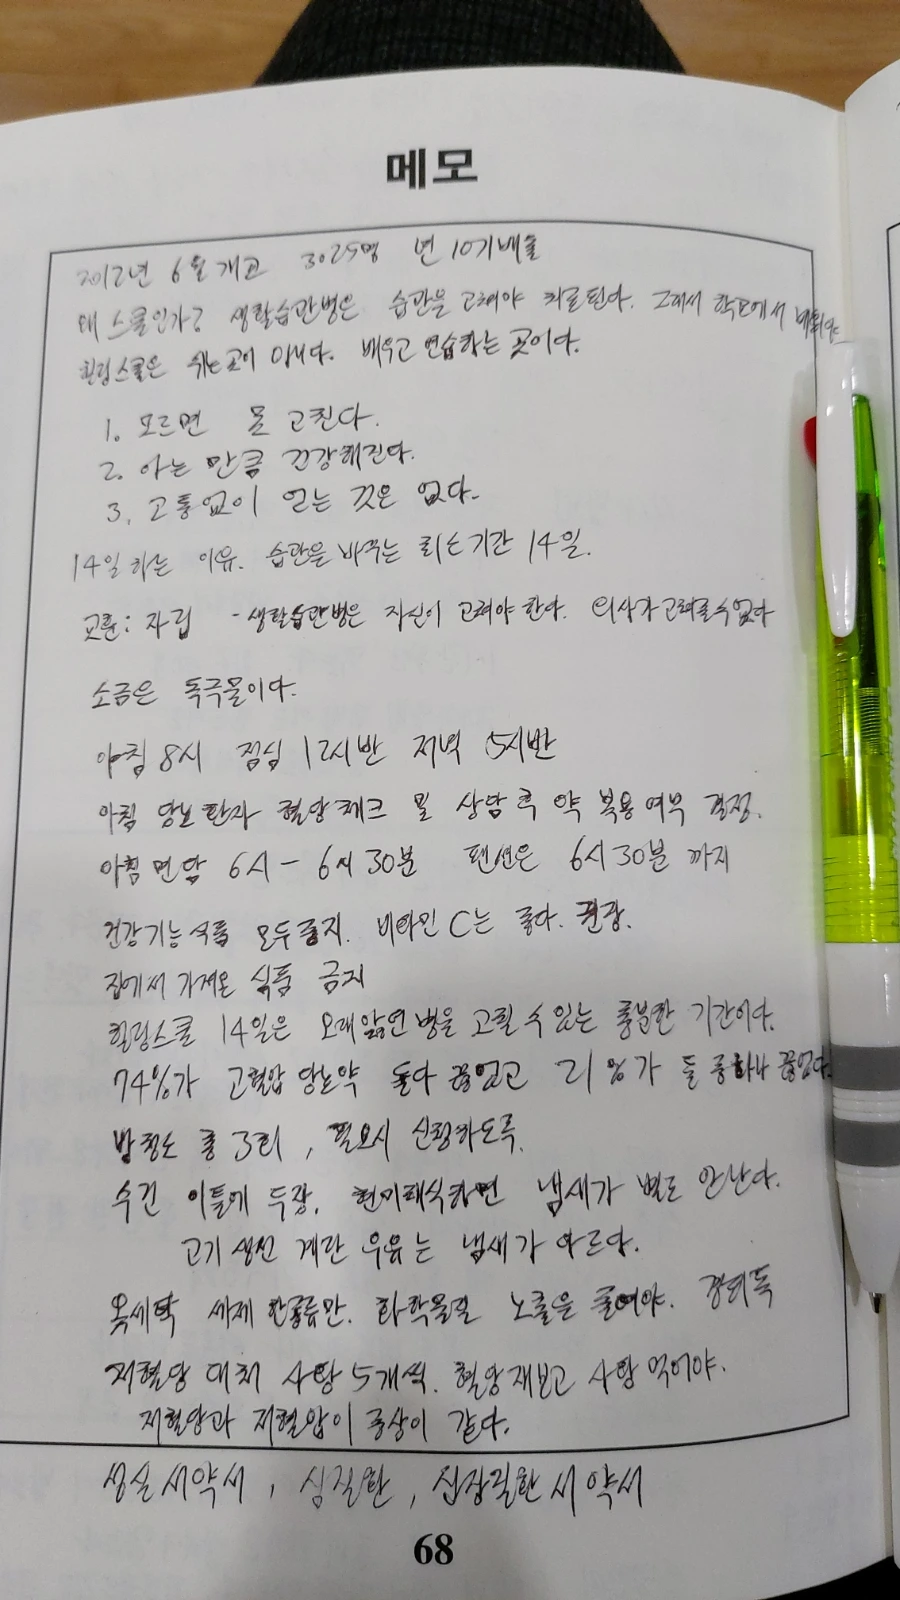 메모
2012년 6월 개교 3025명 년 10기배출
왜 스쿨인가? 생활습관병은 습관을 고쳐야 치료된다. 그래서 학교에서 배워라
힐링스쿨은 쉬는곳이 아니다. 배우고 연습하는 곳이다.
1. 모르면 못 고친다.
2. 아는 만큼 건강해진다.
3. 고통없이 얻는 것은 없다.
14일 하는 이유. 습관을 바꾸는 최소기간 14일.
교훈: 자립 - 생활습관병은 자신이 고쳐야 한다. 의사가 고쳐줄수없다
소금은 독극물이다.
아침 8시 점심 12시반 저녁 5시반
아침 당뇨환자 혈당체크 및 상담후 약 복용여부 결정.
아침면담 6시 - 6시 30분 펜션은 6시 30분 까지
건강기능식품 모두중지. 비타민 C는 좋다.
집에서 가져온 식품 금지
힐링스쿨 14일은 오래앓던 병을 고칠 수 있는 충분한 기간이다.
74%가 고혈압 당뇨약 둘다 끊었고 21%가 둘 중하나 끊었다.
방청소 총 3회, 필요시 신청하도록.
수건 이틀에 두장. 현미채식하면 냄새가 별로 안난다.
고기 생선 계란 우유는 냄새가 다르다.
옷세탁 세제 한종류만. 화학물질 노출을 줄여야. 경피독
저혈당 대처 사탕 5개씩. 혈당재보고 사탕 먹어야.
저혈당과 저혈압이 증상이 같다.
성실서약서, 심질환, 신장질환 서약서
68